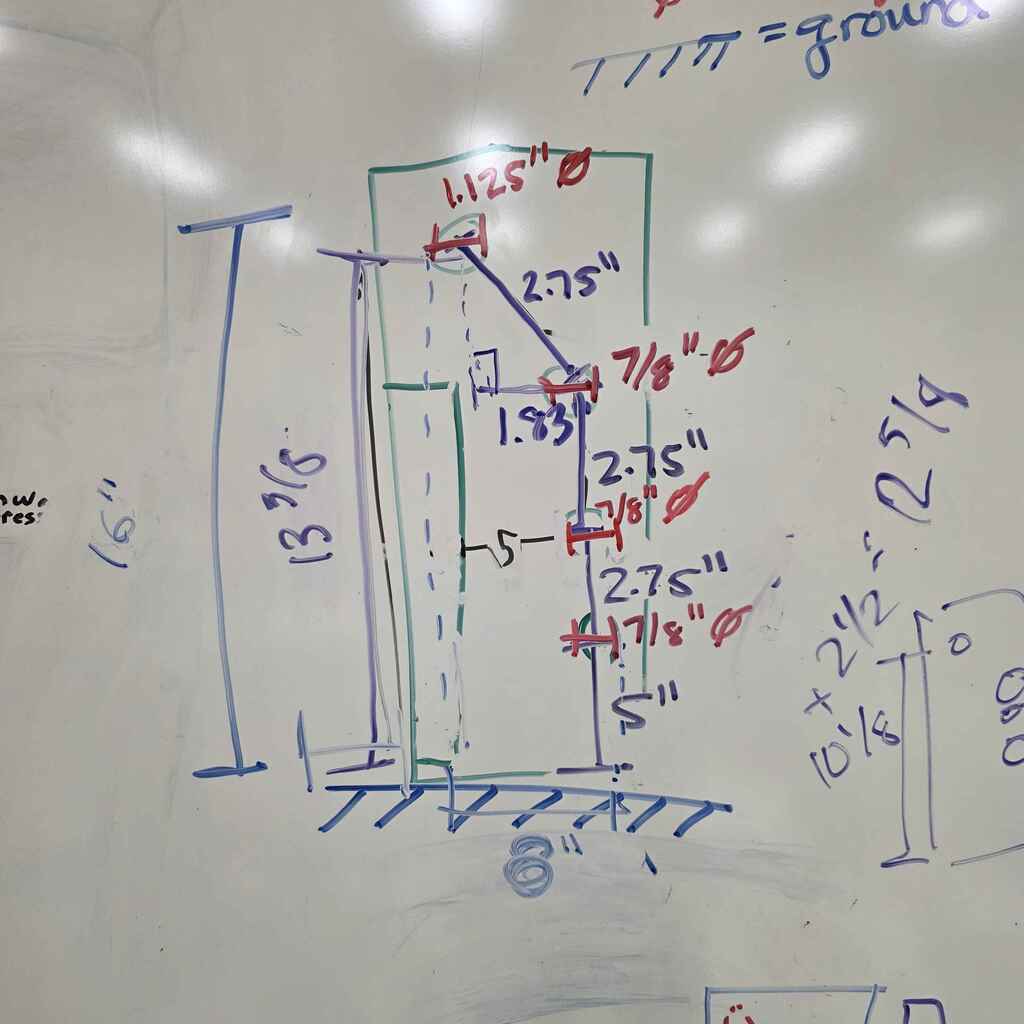 = ground
1.125" Ø
2.75"
7/8" Ø
1.83"
2.75"
7/8" Ø
5
2.75"
7/8" Ø
5"
16"
13 5/8
8"
10 1/8 + 2 1/2 = 12 5/8
0